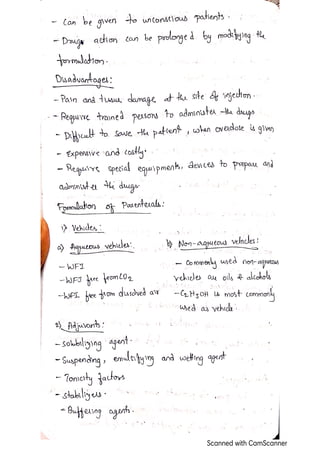 - Can be given to unconscious patients.
- Drugs action can be prolonged by modifying the
formulation.
Disadvantages:
- Pain and tissue damage at the site of injection.
- Require trained persons to administer the drugs
- Difficult to save the patient, when overdose is given
- Expensive and costly.
- Require special equipments, devices to prepare and
administer the drugs.
Formulation of Parenterals:
1) Vehicles:
a) Aqueous vehicles:
- WFI
- WFI free from CO2
- WFI free from dissolved air
b) Non-aqueous vehicles:
- Commonly used non-aqueous
vehicles are oils & alcohols
- C2H5OH is most commonly
used as vehicle.
2) Adjuvants:
- Solubilizing agent.
- Suspending, emulsifying and wetting agent
- Tonicity factors
- Stabilizers.
- Buffering agents.
Scanned with CamScanner